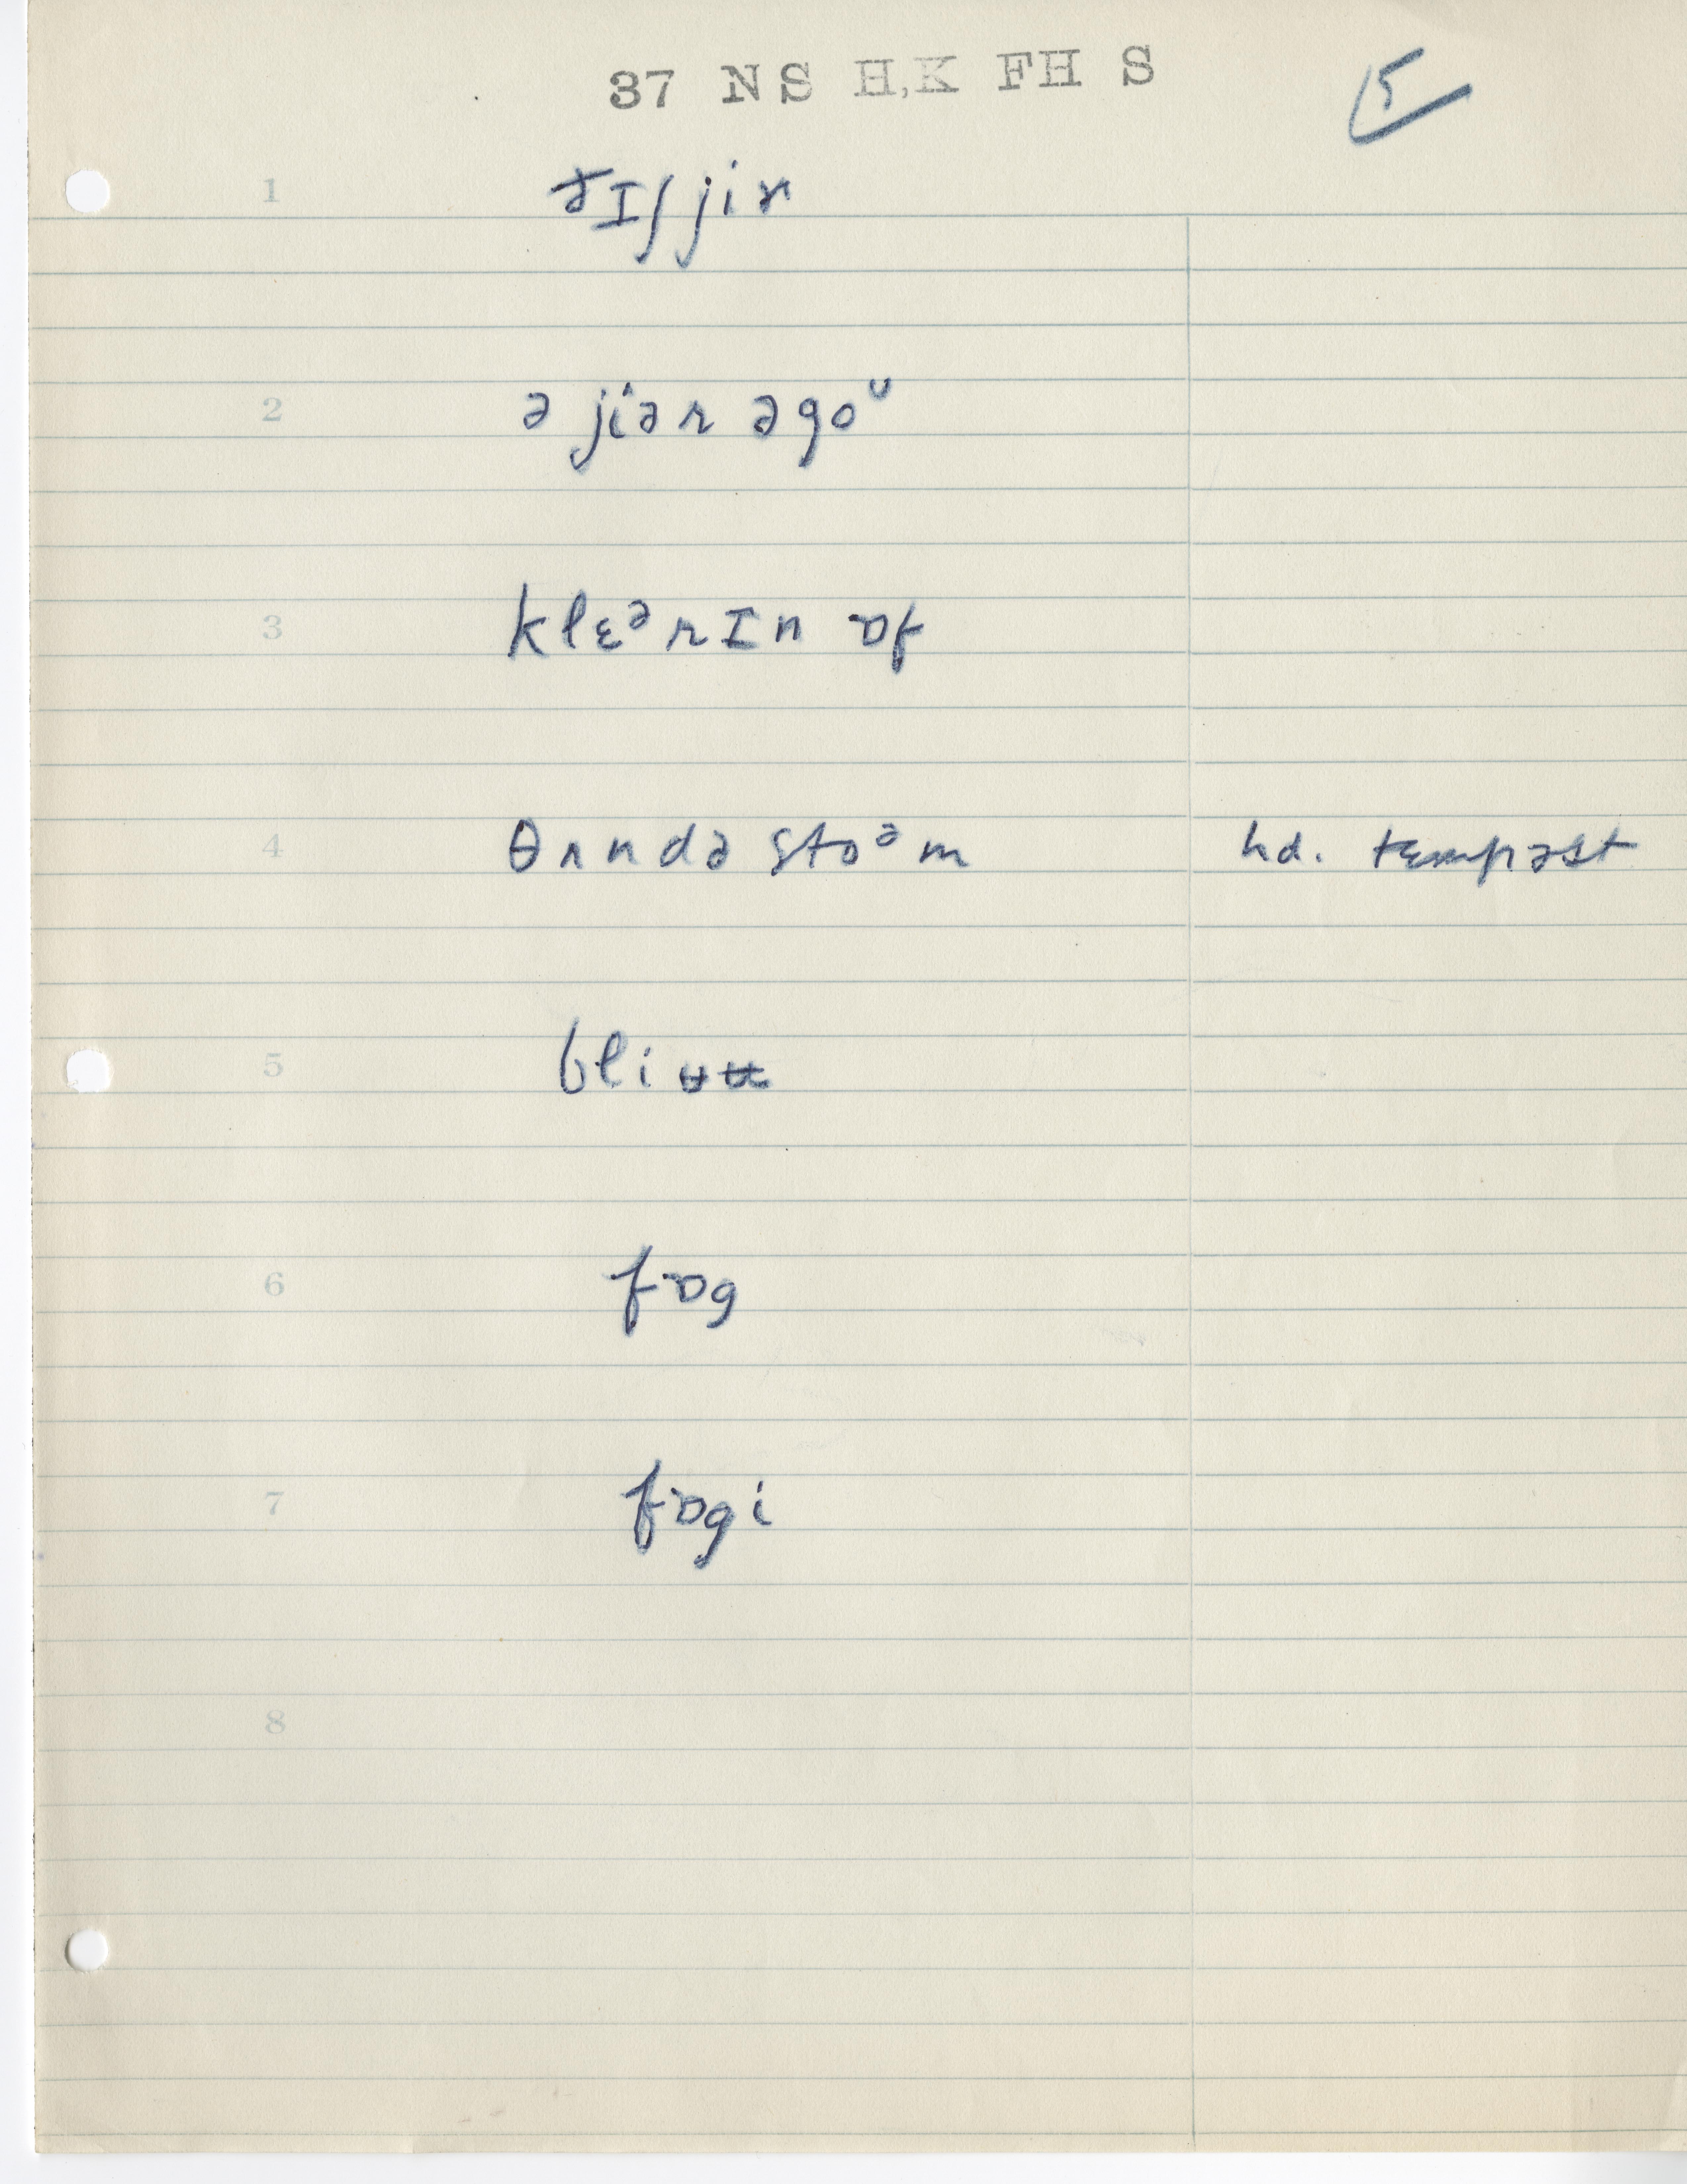 37 NS H,K FH S
15
1
2 ə jiən əgoᵁ
3 klɛᵊrɪn ɒf
4 θʌndə stoᵊm hd. tɛmpəst
5
6 fɒg
7 fɒgi
8